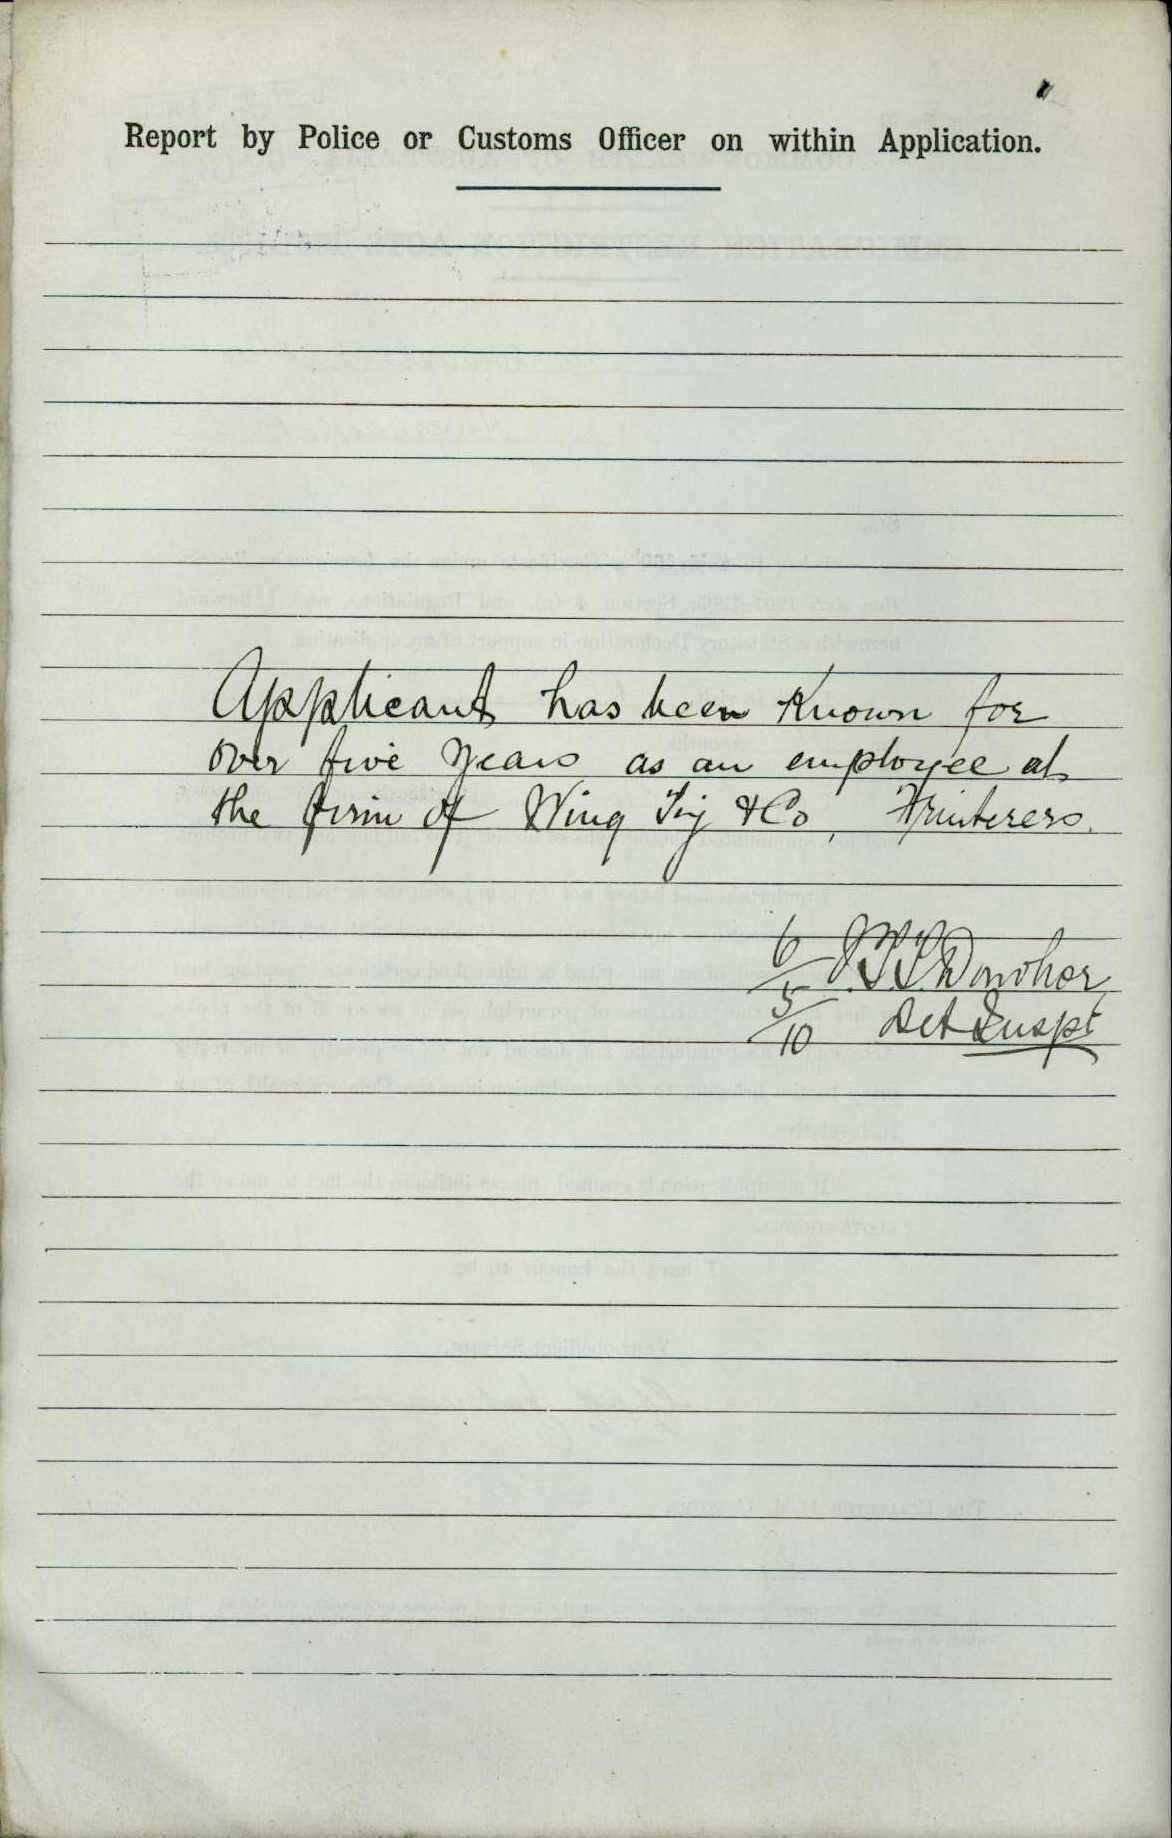 Report by Police or Customs Officer on within Application.
Applicant has been Known for
over five years as an employee at
the firm of Wing & Co,
6/5/10 Donohoe
Det Inspt